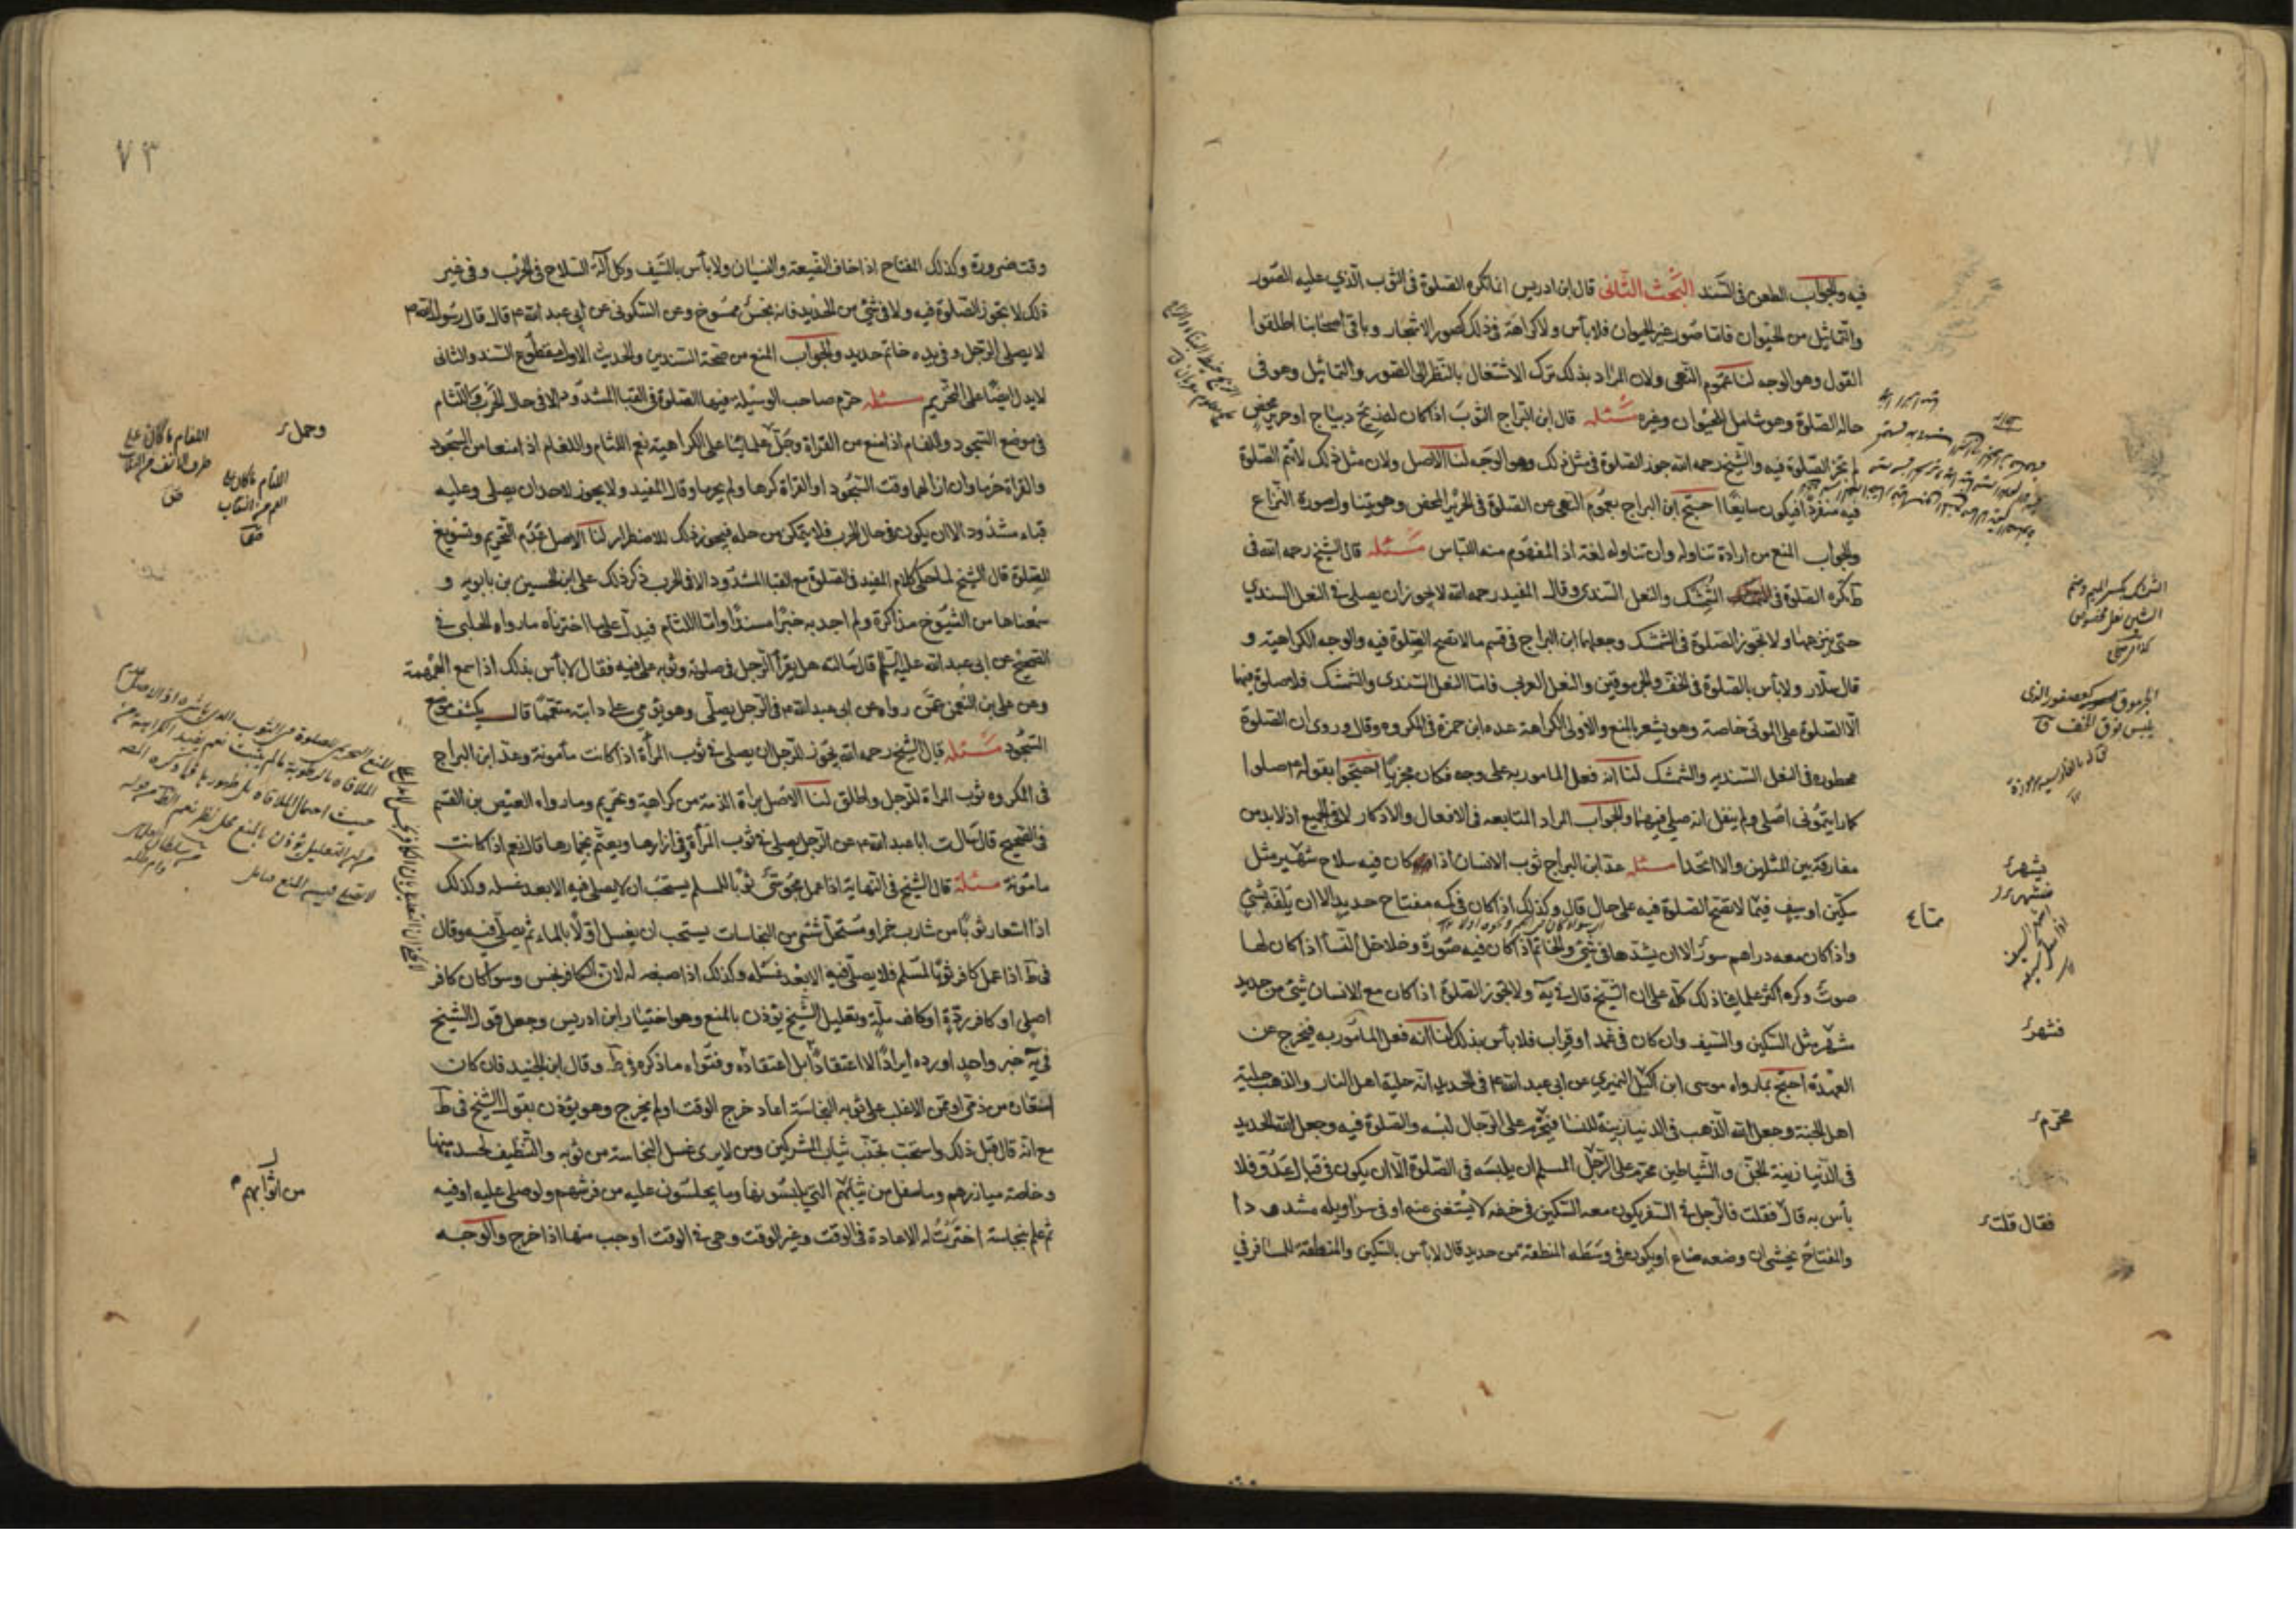 فيه والجواب الطعن فى السند البحث الثانى قال ابن ادريس انما تكره الصلوة فى الثوب الذي عليه الصور
والتماثيل من الحيوان فاما صور غير الحيوان فلا بأس ولا كراهة فى ذلك كصور الاشجار وباقى اصحابنا اطلقوا
القول وهو الوجه لنا عموم النهى ولان المراد بذلك ترك الاشتغال بالنظر الى الصور والتماثيل وهو فى
حالة الصلوة وهو شامل للحيوان وغيره مسئلة قال ابن البراج الثوب اذا كان له ديباج او حرير محض
لم تجز الصلوة فيه والشيخ رحمه الله جوز الصلوة فى مثل ذلك وهو الوجه لنا الاصل ولان مثل ذلك لا تتم الصلوة
فيه منفردا فيكون سايغا احتج ابن البراج بعموم النهى عن الصلوة فى الحرير المحض وهو يتناول صورة النزاع
والجواب المنع من ارادة تناوله وان تناوله لغة اذ المفهوم منه اللباس مسئلة قال الشيخ رحمه الله فى
ط تكره الصلوة فى الشمشك والنعل السندي وقال المفيد رحمه الله لا يجوز ان يصلى فى النعل السندي
حتى ينزعها ولا تجوز الصلوة فى الشمشك وجعلهما ابن البراج فى قسم ما لا تصح الصلوة فيه والوجه الكراهية و
قال سلار ولا بأس بالصلوة فى الخف والجرموقين والنعل العربى فاما النعل السندى والشمشك فلا صلوة فيهما
الا الصلوة على الموتى خاصة وهو يشعر بالمنع والاولى الكراهة عده ابن حمزة فى المكروه وقال وروى ان الصلوة
محظورة فى النعل السندية والشمشك لنا انه فعل المامور به على وجه فكان مجزيا احتجوا بقوله ع صلوا
كما رايتمونى اصلى ولم ينقل انه صلى فيهما والجواب المراد المتابعة فى الافعال والاذكار لا فى الجميع اذ لا بد من
مفارقة بين المثلين والا اتحدا مسئلة عد ابن البراج ثوب الانسان اذا كان فيه سلاح شهير مثل
سكين او سيف فيما لا تصح الصلوة فيه على حال قال وكذلك اذا كان فى كمه مفتاح حديد الا ان يلفه بشئ
واذا كان معه دراهم سود الا ان يشدها فى شئ والخاتم اذا كان فيه صورة وخلاخل النساء اذا كان لها
صوت وكره اكثر علمائنا ذلك كله على ان الشيخ قال فى ية ولا تجوز الصلوة اذا كان مع الانسان شئ من حديد
شهر مثل السكين والسيف وان كان فى غمد او قراب فلا بأس بذلك لنا انه فعل المأمور به فيخرج عن
العهدة احتج بما رواه موسى ابن اكيل النميري عن ابى عبد الله ع فى الحديد انه حلية اهل النار والذهب حلية
اهل الجنة وجعل الله الذهب فى الدنيا زينة للنساء فيحرم على الرجال لبسه والصلوة فيه وجعل الله الحديد
فى الدنيا زينة الجن والشياطين محرم على الرجل المسلم ان يلبسه فى الصلوة الا ان يكون فى قبال عدو فلا
بأس به قال فقلت فالرجل فى السفر يكون معه السكين فى خفه لا يستغنى عنه او فى سراويله مشدودا
والمفتاح يخشى ان وضعه ضاع او يكون فى وسطه المنطقة من حديد قال لا بأس بالسكين والمنطقة للمسافر في
الشمشك بكسر الميم وضم
الجرموق كعصفور الذى
يلبس فوق الخف ق
يشهر
فشهر
محرم
فقال قلت
٧٣
وقت ضرورة وكذلك المفتاح اذا خاف الضيعة والنسيان ولا بأس بالسيف وكل آلة السلاح فى الحرب وفى غير
ذلك لا تجوز الصلوة فيه ولا فى شئ من الحديد فانه نجس ممسوخ وعن السكونى عن ابى عبد الله ع قال قال رسول الله ص
لا يصلى الرجل وفى يده خاتم حديد والجواب المنع من صحة السندين والحديث الاول مقطوع السند والثانى
لا يدل ايضا على التحريم مسئلة حرم صاحب الوسيلة فيها الصلوة فى القباء المشدود الا فى حال الحرب واللثام
فى موضع السجود واللفام اذا منع من القراة وجل علمائنا على الكراهية نعم اللثام واللفام اذا منعا من السجود
والقراة حرما وان ازالهما وقت السجود او القراة كرها ولم يحرما وقال المفيد ولا يجوز لاحد ان يصلى وعليه
قباء مشدود الا ان يكون فى حال الحرب فلا يتمكن من حله فيجوز ذلك للاضطرار لنا الاصل عدم التحريم وتسويغ
للصلوة قال الشيخ لما حكى كلام المفيد فى الصلوة مع القبا المشدود الا فى الحرب ذكر ذلك على ابن الحسين بن بابويه و
سمعناها من الشيوخ مذاكرة ولم اجد به خبرا مسندا واما اللثام فيدل على ما اخترناه ما رواه الحلبى فى
الصحيح عن ابى عبد الله عليه السلم قال سالته هل يقرأ الرجل فى صلوته وثوبه على فيه فقال لا بأس بذلك اذا سمع الهمهمة
وعن على بن النعمن عمن رواه عن ابى عبد الله ع فى الرجل يصلى وهو يؤمي على دابته متعمما قال يكشف موضع
السجود مسئلة قال الشيخ رحمه الله يجوز للرجل ان يصلى فى ثوب المرأة اذا كانت مأمونة وعد ابن البراج
فى المكروه ثوب المراة للرجل واطلق لنا الاصل براءة الذمة من كراهية وتحريم وما رواه العيص بن القسم
فى الصحيح قال سالت ابا عبد الله ع عن الرجل يصلى فى ثوب المرأة وفى ازارها ويعتم بخمارها قال نعم اذا كانت
مامونة مسئلة قال الشيخ فى النهاية اذا عمل مجوسي ثوبا لمسلم يستحب ان لا يصلى فيه الا بعد غسله وكذلك
اذا استعار ثوبا من شارب خمر او مستحل شئ من النجاسات يستحب ان يغسل اولا بالماء ثم يصلى فيه وقال
فى ط اذا عمل كافر ثوبا لمسلم فلا يصلى فيه الا بعد غسله وكذلك اذا صبغه له لان الكافر نجس وسواء كان كافر
اصلى او كافر ردة او كافر ملة وتعليل الشيخ يؤذن بالمنع وهو اختيار ابن ادريس وجعل قول الشيخ
في ية خبر واحد اورده ايرادا لا اعتقادا بل اعتقاده وفتواه ما ذكره فى ط وقال ابن الجنيد فان كان
استعاره من ذمى او ممن الاغلب على ثوبه النجاسة اعاد خرج الوقت او لم يخرج وهو يؤذن بقول الشيخ فى ط
مع انه قال قبل ذلك واستحب تجنب ثياب المشركين ومن لا يرى غسل النجاسة من ثوبه والتنظيف لجسده منها
وخاصة ميازرهم وما سفل من ثيابهم التي يلبسونها وما يجلسون عليه من فرشهم ولو صلى عليه او فيه
ثم علم بنجاسته اخترت له الاعادة فى الوقت وغير الوقت وهى فى الوقت اوجب منها اذا خرج والوجه
وحمل
اللفام ما كان على
طرف الانف من النقاب
اللثام ما كان على
الفم من النقاب
من اثوابهم